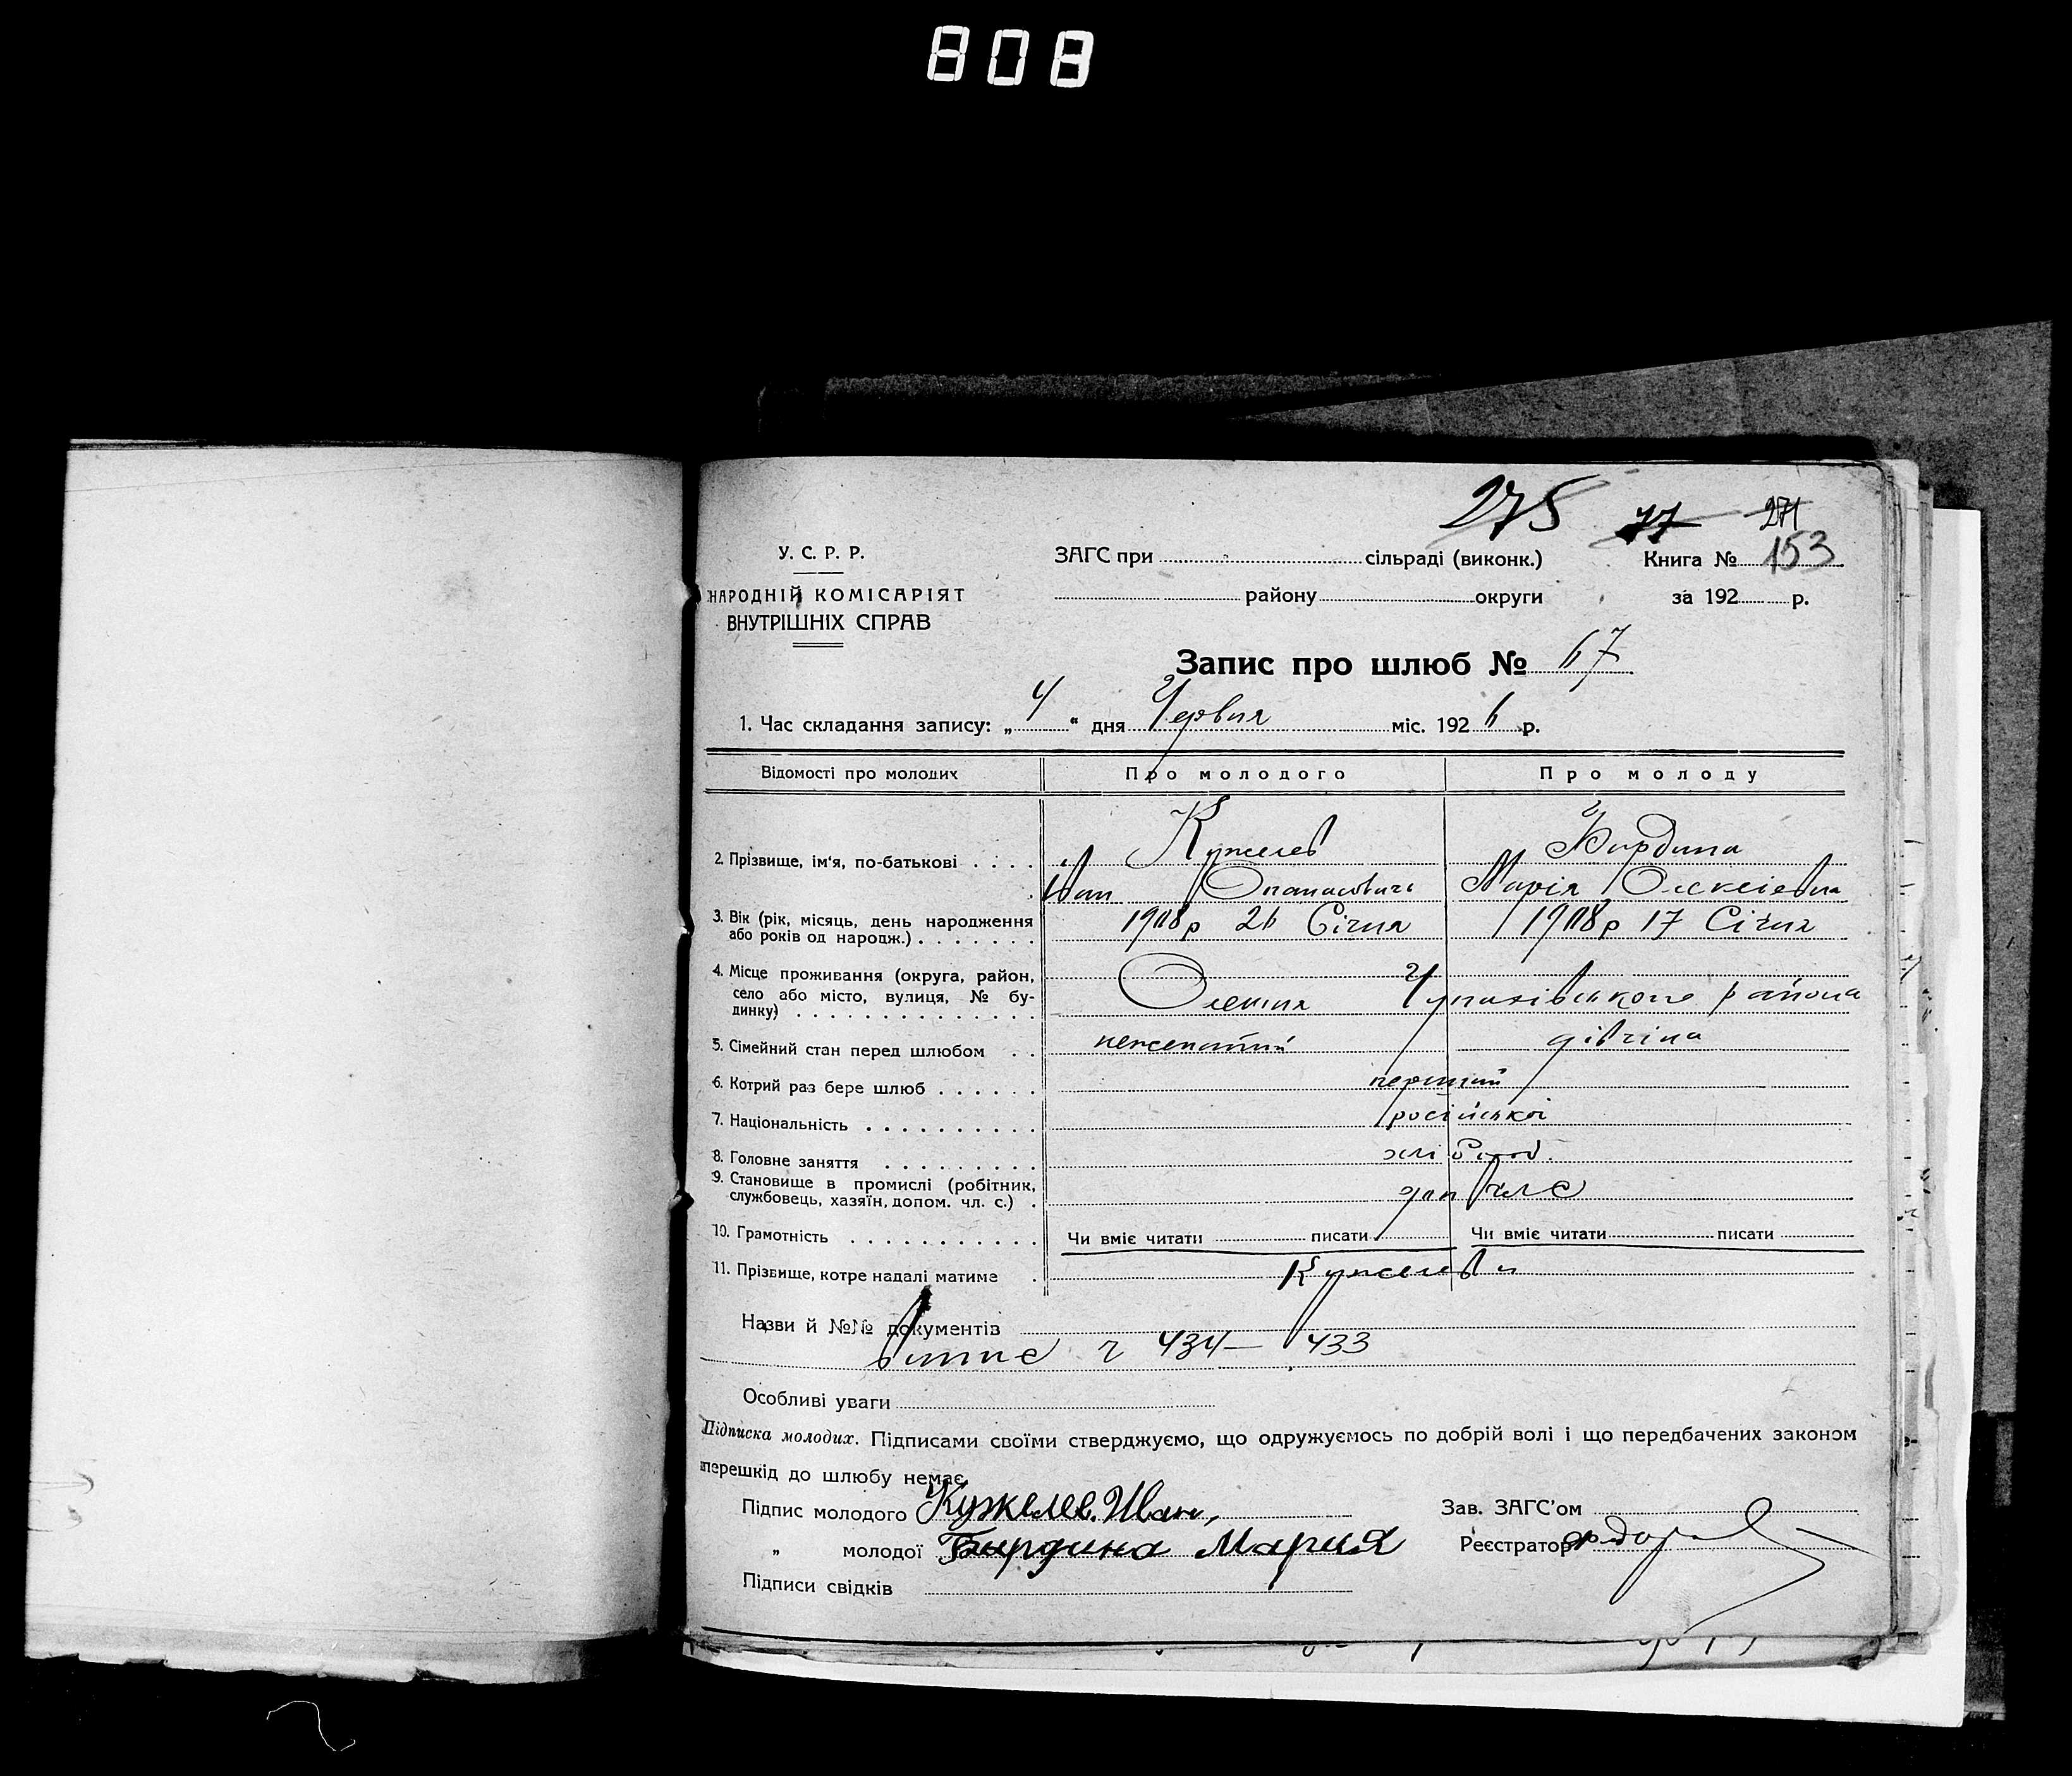 808
275 77 271
У. С. Р. Р.
ЗАГС при сільраді (виконк.) Книга № 153
НАРОДНІЙ КОМІСАРІЯТ
ВНУТРІШНІХ СПРАВ
району округи за 192 р.
Запис про шлюб № 67
1. Час складання запису: „ 4 “ дня Червня міс. 1926 р.
Відомості про молодих Про молодого Про молоду
2. Прізвище, ім'я, по-батькові Кужелев Бирдина
Іван Опанасович Марія Олексіевна
3. Вік (рік, місяць, день народження 1908 р 26 Січня 1908 р 17 Січня
або років од народж.)
4. Місце проживання (округа, район,
село або місто, вулиця, № бу- Олешня района
динку)
5. Сімейний стан перед шлюбом нежонатий дівчина
6. Котрий раз бере шлюб перший
7. Національність російської
8. Головне заняття хлібороб.
9. Становище в промислі (робітник,
службовець, хазяїн, допом. чл. с.) доп чл с
10. Грамотність Чи вміє читати писати Чи вміє читати писати
11. Прізвище, котре надалі матиме Кужелеви
Назви й №№ документів
ч 434 — 433
Особливі уваги
Підписка молодих. Підписами своїми стверджуємо, що одружуємось по добрій волі і що передбачених законом
перешкід до шлюбу немає.
Підпис молодого Кужелев. Иван, Зав. ЗАГС'ом
„ молодої Бирдина Мария Реєстратор
Підписи свідків